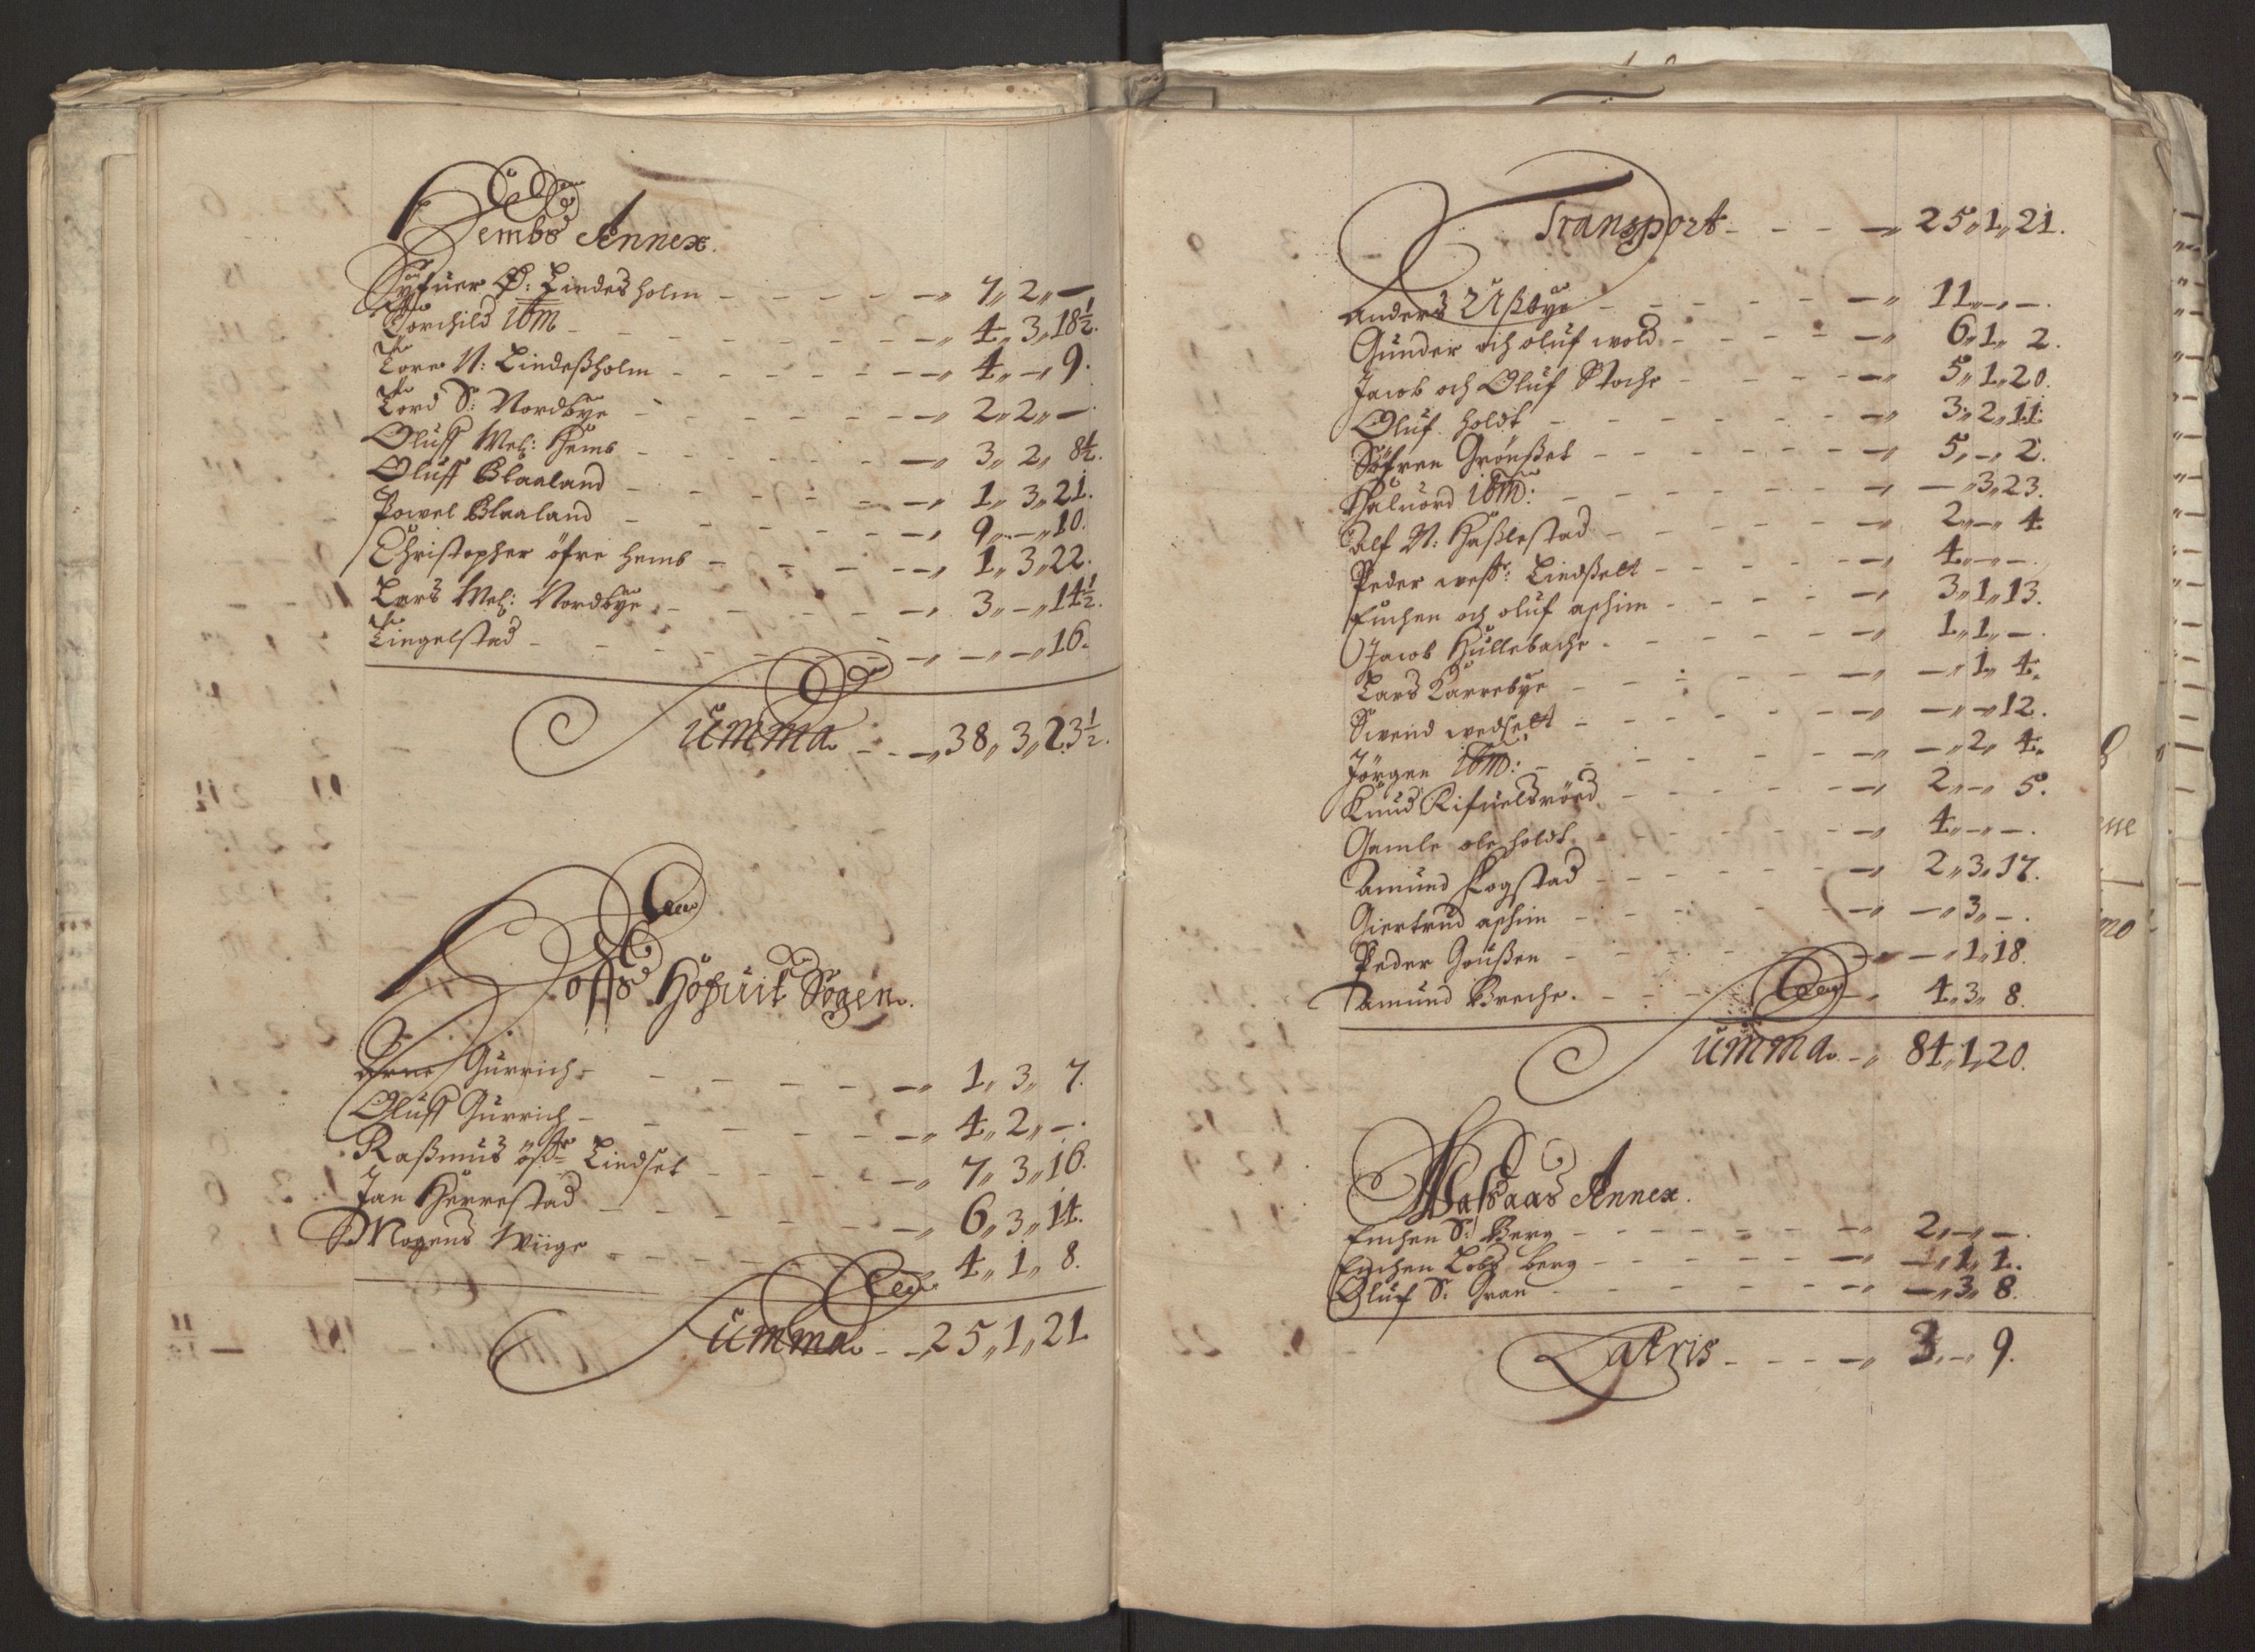 Hembs Annex.
Syfuer Ø: Lindesholm - - - - - -„ 7„ 2„ -
Torchild ibm - - - - - -„ 4„ 3„ 18½.
Tore N: Lindeßholm - - - - - -„ 4„ -„ 9.
Tord S: Nordbye - - - - - -„ 2„ 2„ -.
Oluff Mel: Hemb - - - - - -„ 3„ 2„ 8½.
Oluff Blaaland - - - - - -„ 1„ 3„ 21.
Powel Blaaland - - - - - -„ 9„ -„ 10.
Christopher öfre Hemb - - - - -„ 1„ 3„ 22.
Lars Mel: Nordbye - - - - - -„ 3„ -„ 14½.
Tingelstad - - - - - -„ -„ -„ 16.
Summa - - -„ 38„ 3„ 23½.
Hoffs Hofuit Sogen.
Arne Gurrich - - - - - -„ 1„ 3„ 7.
Oluff Gurrich - - - - - -„ 4„ 2„ -.
Raßmus öst: Lindset - - - - -„ 7„ 3„ 16.
Jan Herrestad - - - - - -„ 6„ 3„ 14.
Mogens Wiige - - - - - -„ 4„ 1„ 8.
Summa - -„ 25„ 1„ 21
Transport - - - -„ 25„ 1„ 21.
Anders - - - - - -„ 11„ -„ -.
Gunder och oluf wold - - - - -„ 6„ 1„ 2.
Jacob och Oluf Stoche - - - - -„ 5„ 1„ 20.
Oluf holdt - - - - - -„ 3„ 2„ 11.
Söfren Grönßet - - - - - -„ 5„ -„ 2.
Haluord ibm: - - - - - -„ -„ 3„ 23.
Alf N: Haßlestad - - - - - -„ 2„ -„ 4
Peder west: Lindßelt - - - - -„ 4„ -„ -.
Enchen och oluf ashim - - - - -„ 3„ 1„ 13.
Jacob Hullebache - - - - - -„ 1„ 1„ -.
Lars Karrebye - - - - - -„ -„ 1„ 4.
Swend wedselt - - - - - -„ -„ -„ 12.
Jörgen ibm: - - - - - -„ -„ 2„ 4.
Knud Rifuelsröed - - - - - -„ 2„ -„ 5.
Gamle ole holdt - - - - - -„ 4„ -„ -.
Amund Fogstad - - - - - -„ 2„ 3„ 17.
Giertrud ashim - - - - - -„ -„ 3„ -.
Peder Goußen - - - - - -„ -„ 1„ 18.
Amund Breche - - - - - -„ 4„ 3„ 8.
Summa - -„ 84„ 1„ 20.
Waßaas Annex.
Enchen S: Berg - - - - - -„ 2„ -„ -.
Enchen berg - - - - - -„ -„ 1„ 1.
Oluf S: Gran - - - - - -„ -„ 3„ 8.
Latris - - - -„ 3„ -„ 9.